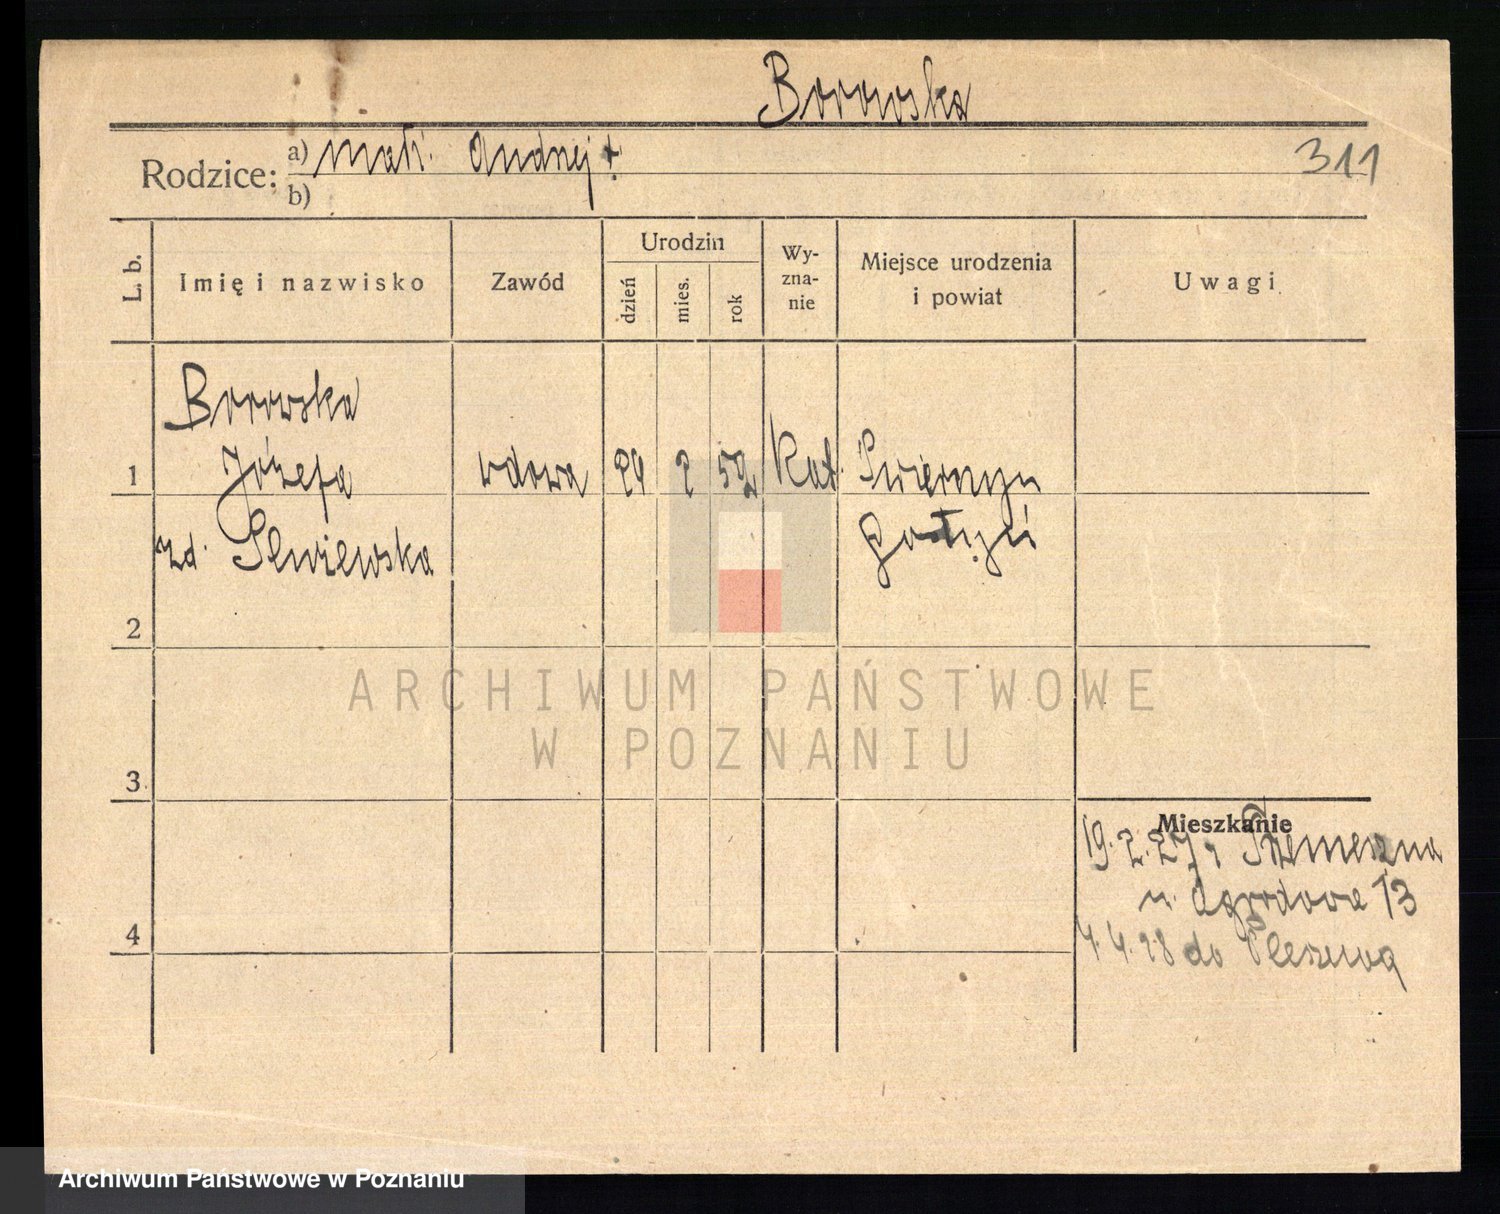 Borowska
311
Rodzice: a) Mał: Andrzej +
b)
L. b.
Imię i nazwisko
Zawód
Urodzin
dzień
mies.
rok
Wy-
zna-
nie
Miejsce urodzenia
i powiat
Uwagi
Borowska
1 Józefa wdowa 24 2 59 Kat.
zd.
2
3
4
Mieszkanie
19.2.27
u. Ogrodowa 13
4.4.28 do Pleszewa
ARCHIWUM PAŃSTWOWE
W POZNANIU
Archiwum Państwowe w Poznaniu